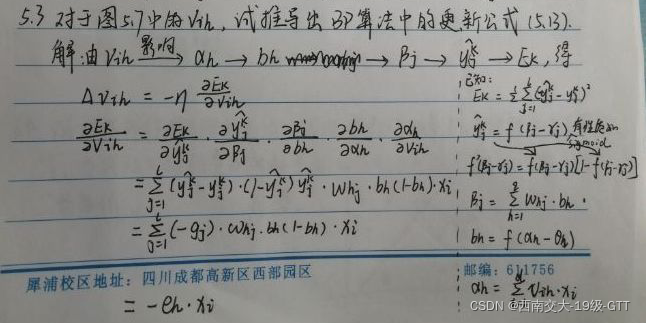 5.3 对于图5.7中的Vih,试推导出BP算法中的更新公式(5.13).
解:由Vih 影响→ αh → bh → βj → ŷjᵏ → Ek,得
ΔVih = -η ∂Ek/∂Vih
∂Ek/∂Vih = ∂Ek/∂ŷjᵏ · ∂ŷjᵏ/∂βj · ∂βj/∂bh · ∂bh/∂αh · ∂αh/∂Vih
= Σ_{j=1}^{l} (ŷjᵏ - yjᵏ)·(1-ŷjᵏ)ŷjᵏ · Whj · bh(1-bh)·xi
= Σ_{j=1}^{l} (-gj)·Whj·bh(1-bh)·xi
= -eh·xi
已知:
Ek = ½ Σ_{j=1}^{l} (ŷjᵏ - yjᵏ)²
ŷjᵏ = f(βj-γj)
sigmoid
f'(βj-γj) = f(βj-γj)[1-f(βj-γj)]
βj = Σ_{h=1}^{q} Whj·bh.
bh = f(αh-θh)
αh = Σ Vih·xi
犀浦校区地址:四川成都高新区西部园区
邮编:611756
CSDN @西南交大-19级-GTT